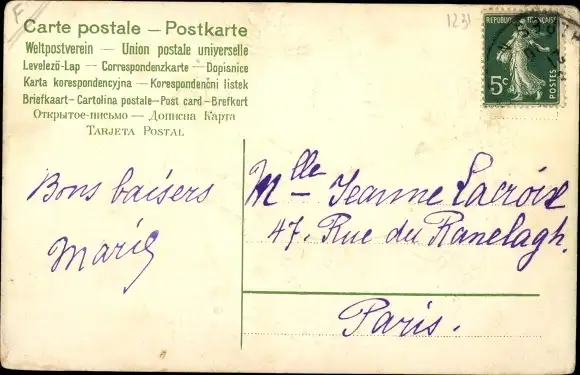 F
1231
Carte postale — Postkarte
Weltpostverein — Union postale universelle
Levelező-Lap — Correspondenzkarte — Dopisnice
Karta korespondencyjna — Korespondenční listek
Briefkaart — Cartolina postale — Post card — Brefkort
Открытое-письмо — Дописна Карта
Tarjeta Postal
REPUBLIQUE FRANÇAISE
5c
POSTES
Bons baisers
Marie
Mlle Jeanne Lacroix
47. Rue du Ranelagh.
Paris.